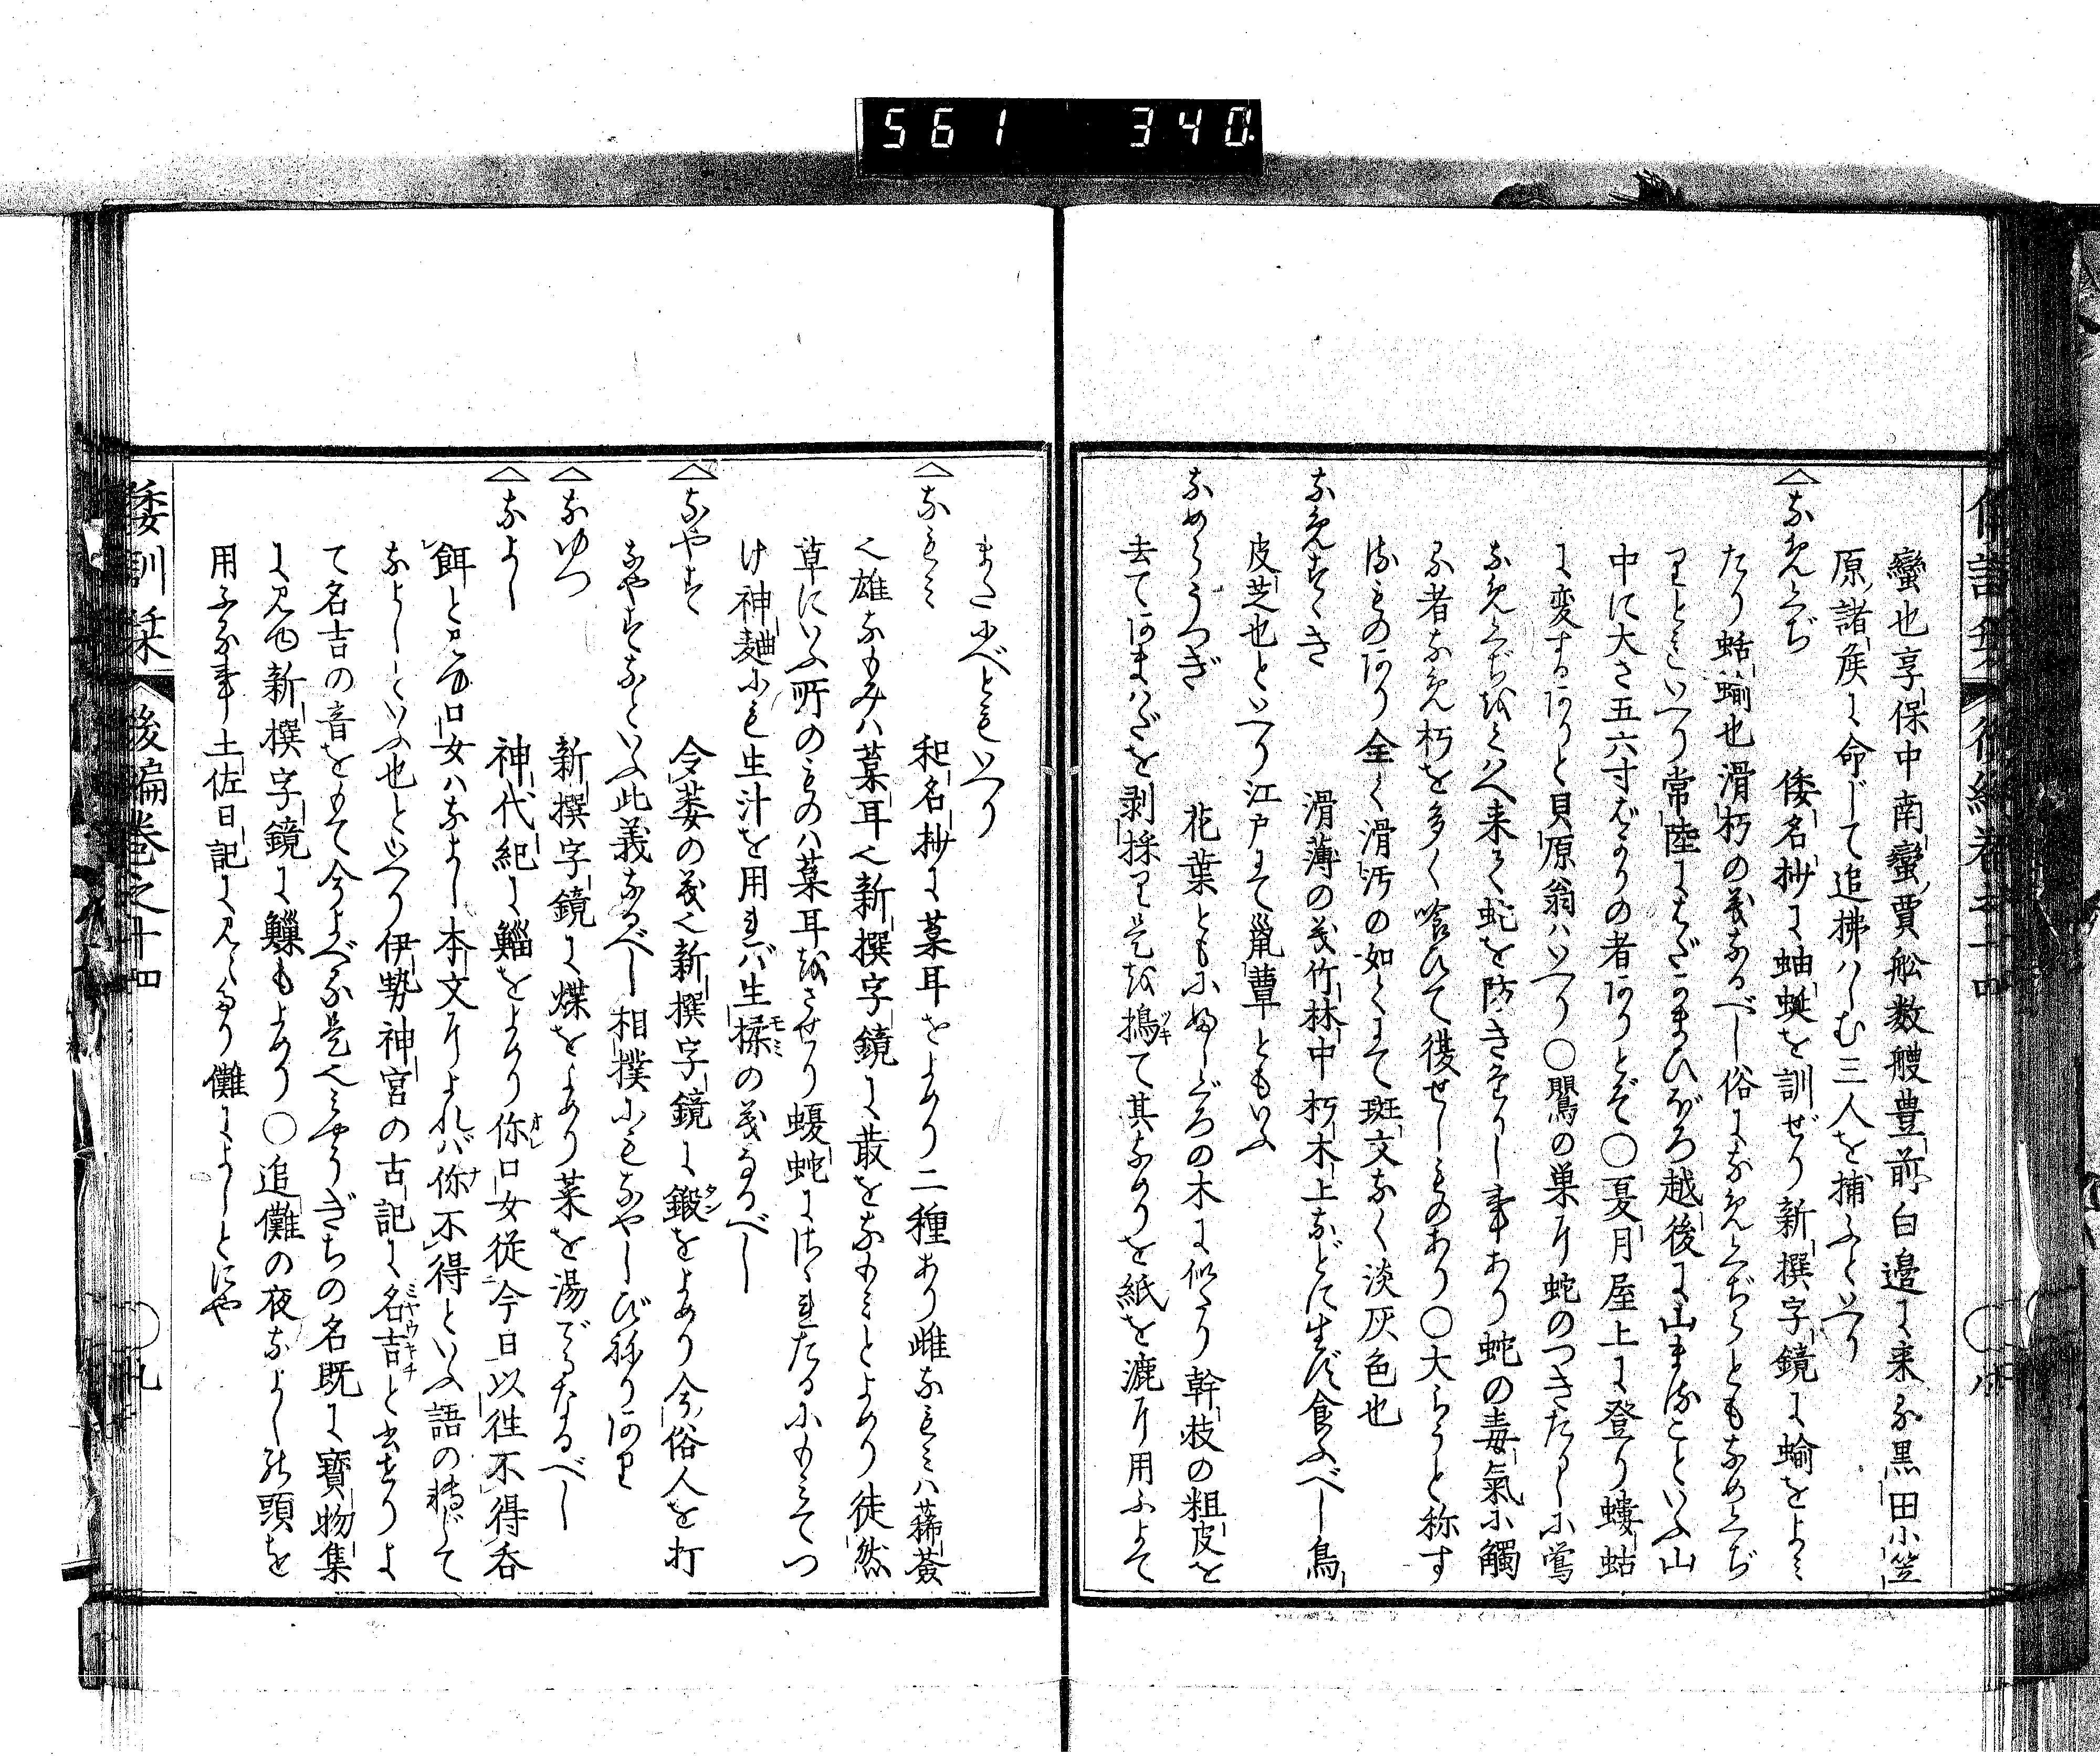 561 340
蠻也享保中南蠻賈舩数艘豊前白邉に来る黒田小笠
原諸侯に命じて追拂ハしむ三人を捕ふといへり
なめくぢ 倭名抄に蛞蝓を訓ぜり新撰字鏡に蝓をよミ
たり蛞蝓也滑朽の義なるべし俗になめくぢらともなめくぢ
りともいへり常陸にはだかまひぼろ越後に山まることいふ山
中に大さ五六寸ばかりの者ありとぞ〇夏月屋上に登り螻蛄
に変するありと貝原翁ハいへり〇鷪の巣に蛇のつきたりしに鴬
なめくぢをくはへ来て蛇を防きたりし事あり蛇の毒氣に觸
る者なめ朽を多く喰ひて復せしものあり〇大らうと称す
るものあり全く滑汚の如くにて斑文なく淡灰色也
なめすゝき 滑薄の義竹林中朽木上などに生ず食ふべし鳥
皮芝也といへり江戸にて巣蕈ともいふ
なめらうつぎ 花葉ともにぬしどろの木に似たり幹枝の粗皮を
去てあまハだを剥採り是を搗て其なめりを紙を漉に用ふよて
またふべともいへり
なもミ 和名抄に葈耳をよめり二種あり雌なもミハ豨薟
也雄なもみハ葈耳也新撰字鏡に菆をなもミとよめり徒然
草にいふ所のものハ葈耳をさせり蝮蛇にさゝれたるにもミてつ
け神麯にも生汁を用れバ生揉の義なるべし
なやす 令萎の義也新撰字鏡に鍛をよめり今俗人を打
なやすなといふ此義なるべし相撲にもなやしび祢りあり
なゆつ 新撰字鏡に煠をよめり菜を湯でるなるべし
なよし 神代紀に鯔をよめり你口女従今日以往不得呑
餌と見ゆ口女ハなよし本文によれバ你不得といふ語の轉じて
なよしといふ也といへり伊勢神宮の古記に名吉と書たりよ
て名吉の音をもて今よべる是也ミやうぎちの名既に寳物集
に見ゆ新撰字鏡に鱳もよめり〇追儺の夜なよしの頭を
用ふる事土佐日記に見えたり儺によしとにや
倭訓栞 後編巻之十四 九